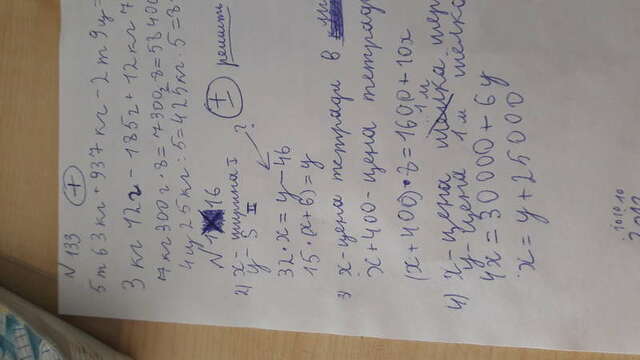 N 133 (+)
5 т 63 кг + 937 кг - 2 т 9 ц =
3 кг 12 г - 185 г + 12 кг 7
7 кг 300 г · 8 = 7300 г · 8 = 58400
4 ц 25 кг : 5 = 425 кг · 5 = 8
N 16
± решить
2) x - ширина I
y = S II
?
32 · x = y - 46
15 · (x + 6) = y
3) x - цена тетради в
x + 400 - цена тетрад
(x + 400) · 8 = 1600 + 10x
4) x - цена 1 м шер
y - цена 1 м шёлка
4x = 30000 + 6y
x = y + 25000
10 10 10
2012